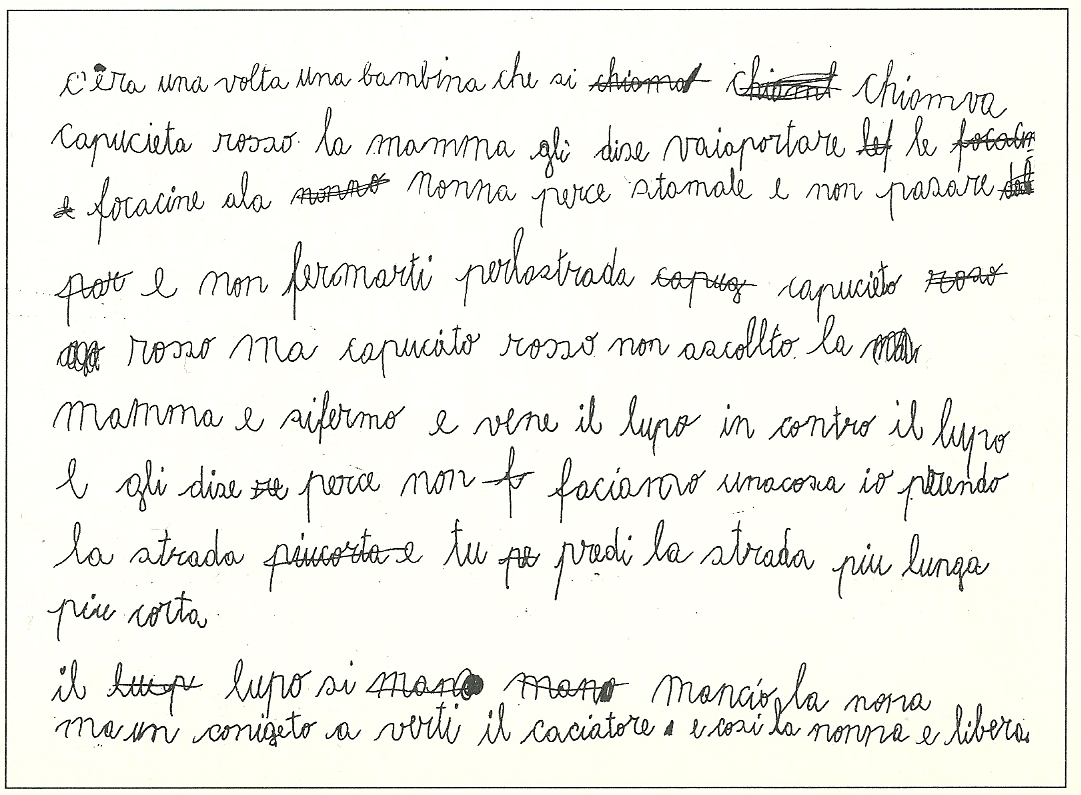 c'era una volta una bambina che si chiama chiamt chiamva
capucieta rosso la mamma gli dise vaiaportare lef le focacin
e focacine ala nonno nonna perce stamale e non pasare
par e non fermarti perlastrada capug capucieto roso
rosso ma capucieto rosso non ascollto la ma
mamma e sifermo e vene il lupo in contro il lupo
e gli dise perce non f faciamo unacosa io prendo
la strada piucorta e tu pe predi la strada piu lunga
piu corta
il lup lupo si mano mano manciò la nona
ma un conigeto a verti il caciatore e cosi la nonna e libera.